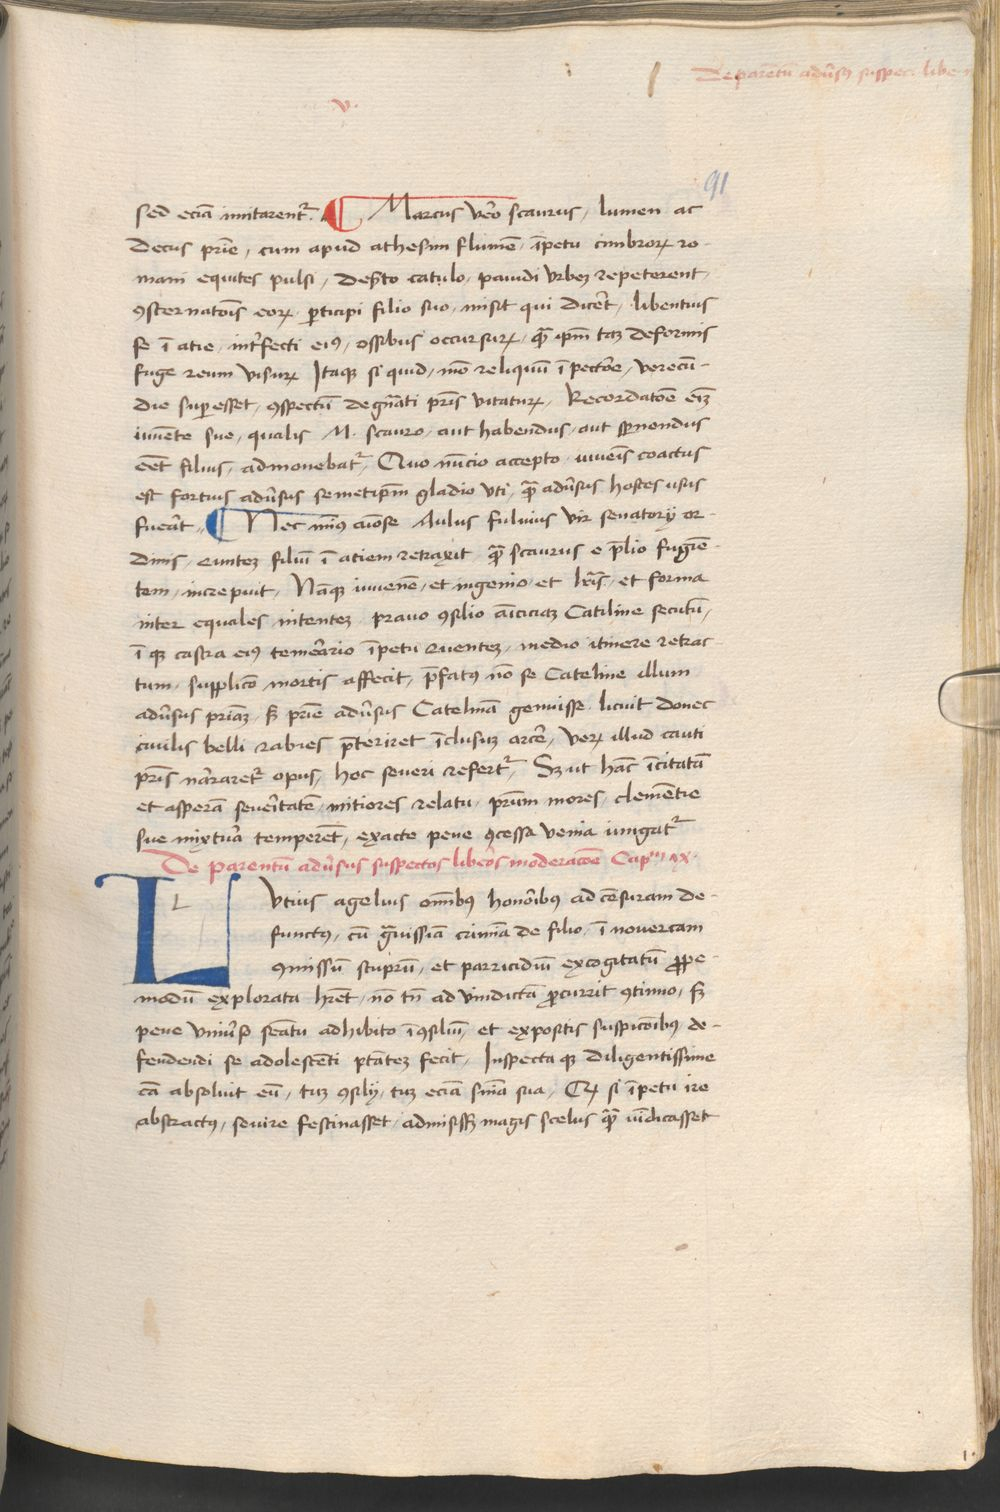 De parentū adūsꝰ suspect libe
v.
91
sed eciā imitarentᷣ. ¶ Marcus vēo scaurus / lumen ac
decus prīe / cum apud athesim flumē / īpetu cimbroꝝ ro-
mani equites pulsi / deſto catulo / pavidi vrbeꝫ repeterent /
ꝯsternatoīs eoꝝ / ꝑticipi filio suo / misit qui diceīt / libentius
se ī atie / intfecti eiꝰ / ossibus occursuꝝ / qᷓ ipm̄ taꝫ deformis
fuge reum visuꝝ Itaqꝫ si quid / mō reliquū ī pectore / verecū-
die superesset / ꝯspectū degn̄ati pr̄is vitatuꝝ / Recordatōe eīꝫ
iuuēte sue / qualis M. scauro / aut habendus / aut sꝑnendus
eēt filius / admonebatᷣ / Quo nūcio accepto / iuveīs coactus
est fortius adūsus semetipm̄ gladio vti / qᷓ adūsus hostes usus
fueāt / ¶ Nec mīꝰ aīose Aulus fulvius vir senatorij or-
dinis / eunteꝫ filiū ī atiem retraxit / qᷓ scaurus e p̄lio fugiē-
tem / increpuit / Nāqꝫ iuvenē / et ingenio / et lr̄is / et forma
inter equales nitenteꝫ pravo ꝯsilio aīciciaꝫ Catiline secutū /
ī qꝫ castra eiꝰ temeāio īpetu ruenteꝫ / medio itinere retrac
tum / supplicō mortis affecit / p̄fatꝰ nō se Cateline illum
adūsus priaꝫ / sꝫ prīe adūsus Catelinā genuisse / licuit donec
civilis belli rabies p̄teriret īclusuꝫ arceē / veꝝ illud cauti
pr̄is nārraretᷣ opus / hoc severi refertᷣ / Sꝫ ut hāc īcitatā
et asperā seveītatē / mitiores relatu / prūm mores / clemētie
sue mixtuā temperēt / exacte pene ꝯcessa venia iungatᷣ
De parentū adūsus suspectos libeōs moderacōe Capᵐ ix.
L Vtius agelius om̄ibꝰ honōibus ad cēsuram de-
functꝰ / cū gᷓuissiā crimīa de filio / ī novercam
ꝯmissū stuprū / et parricidiū excogitatū ꝓpe-
modū explorata hr̄et / nō tn̄ ad vindictā ꝓcurrit ꝯtinuo / sꝫ
pene vniūso seātu adhibito ī ꝯsiliū / et expositis suspicōibꝰ de-
fendendi se adolescēti ptāteꝫ fecit / Inspecta qꝫ diligentissime
cā absoluit eū / tuꝫ ꝯsilij / tuꝫ eciā sniā sua / Qꝫ si īpetu ire
abstractꝰ / sevire festinasset / admisisꝫ magis scelus qᷓ vīdicasset